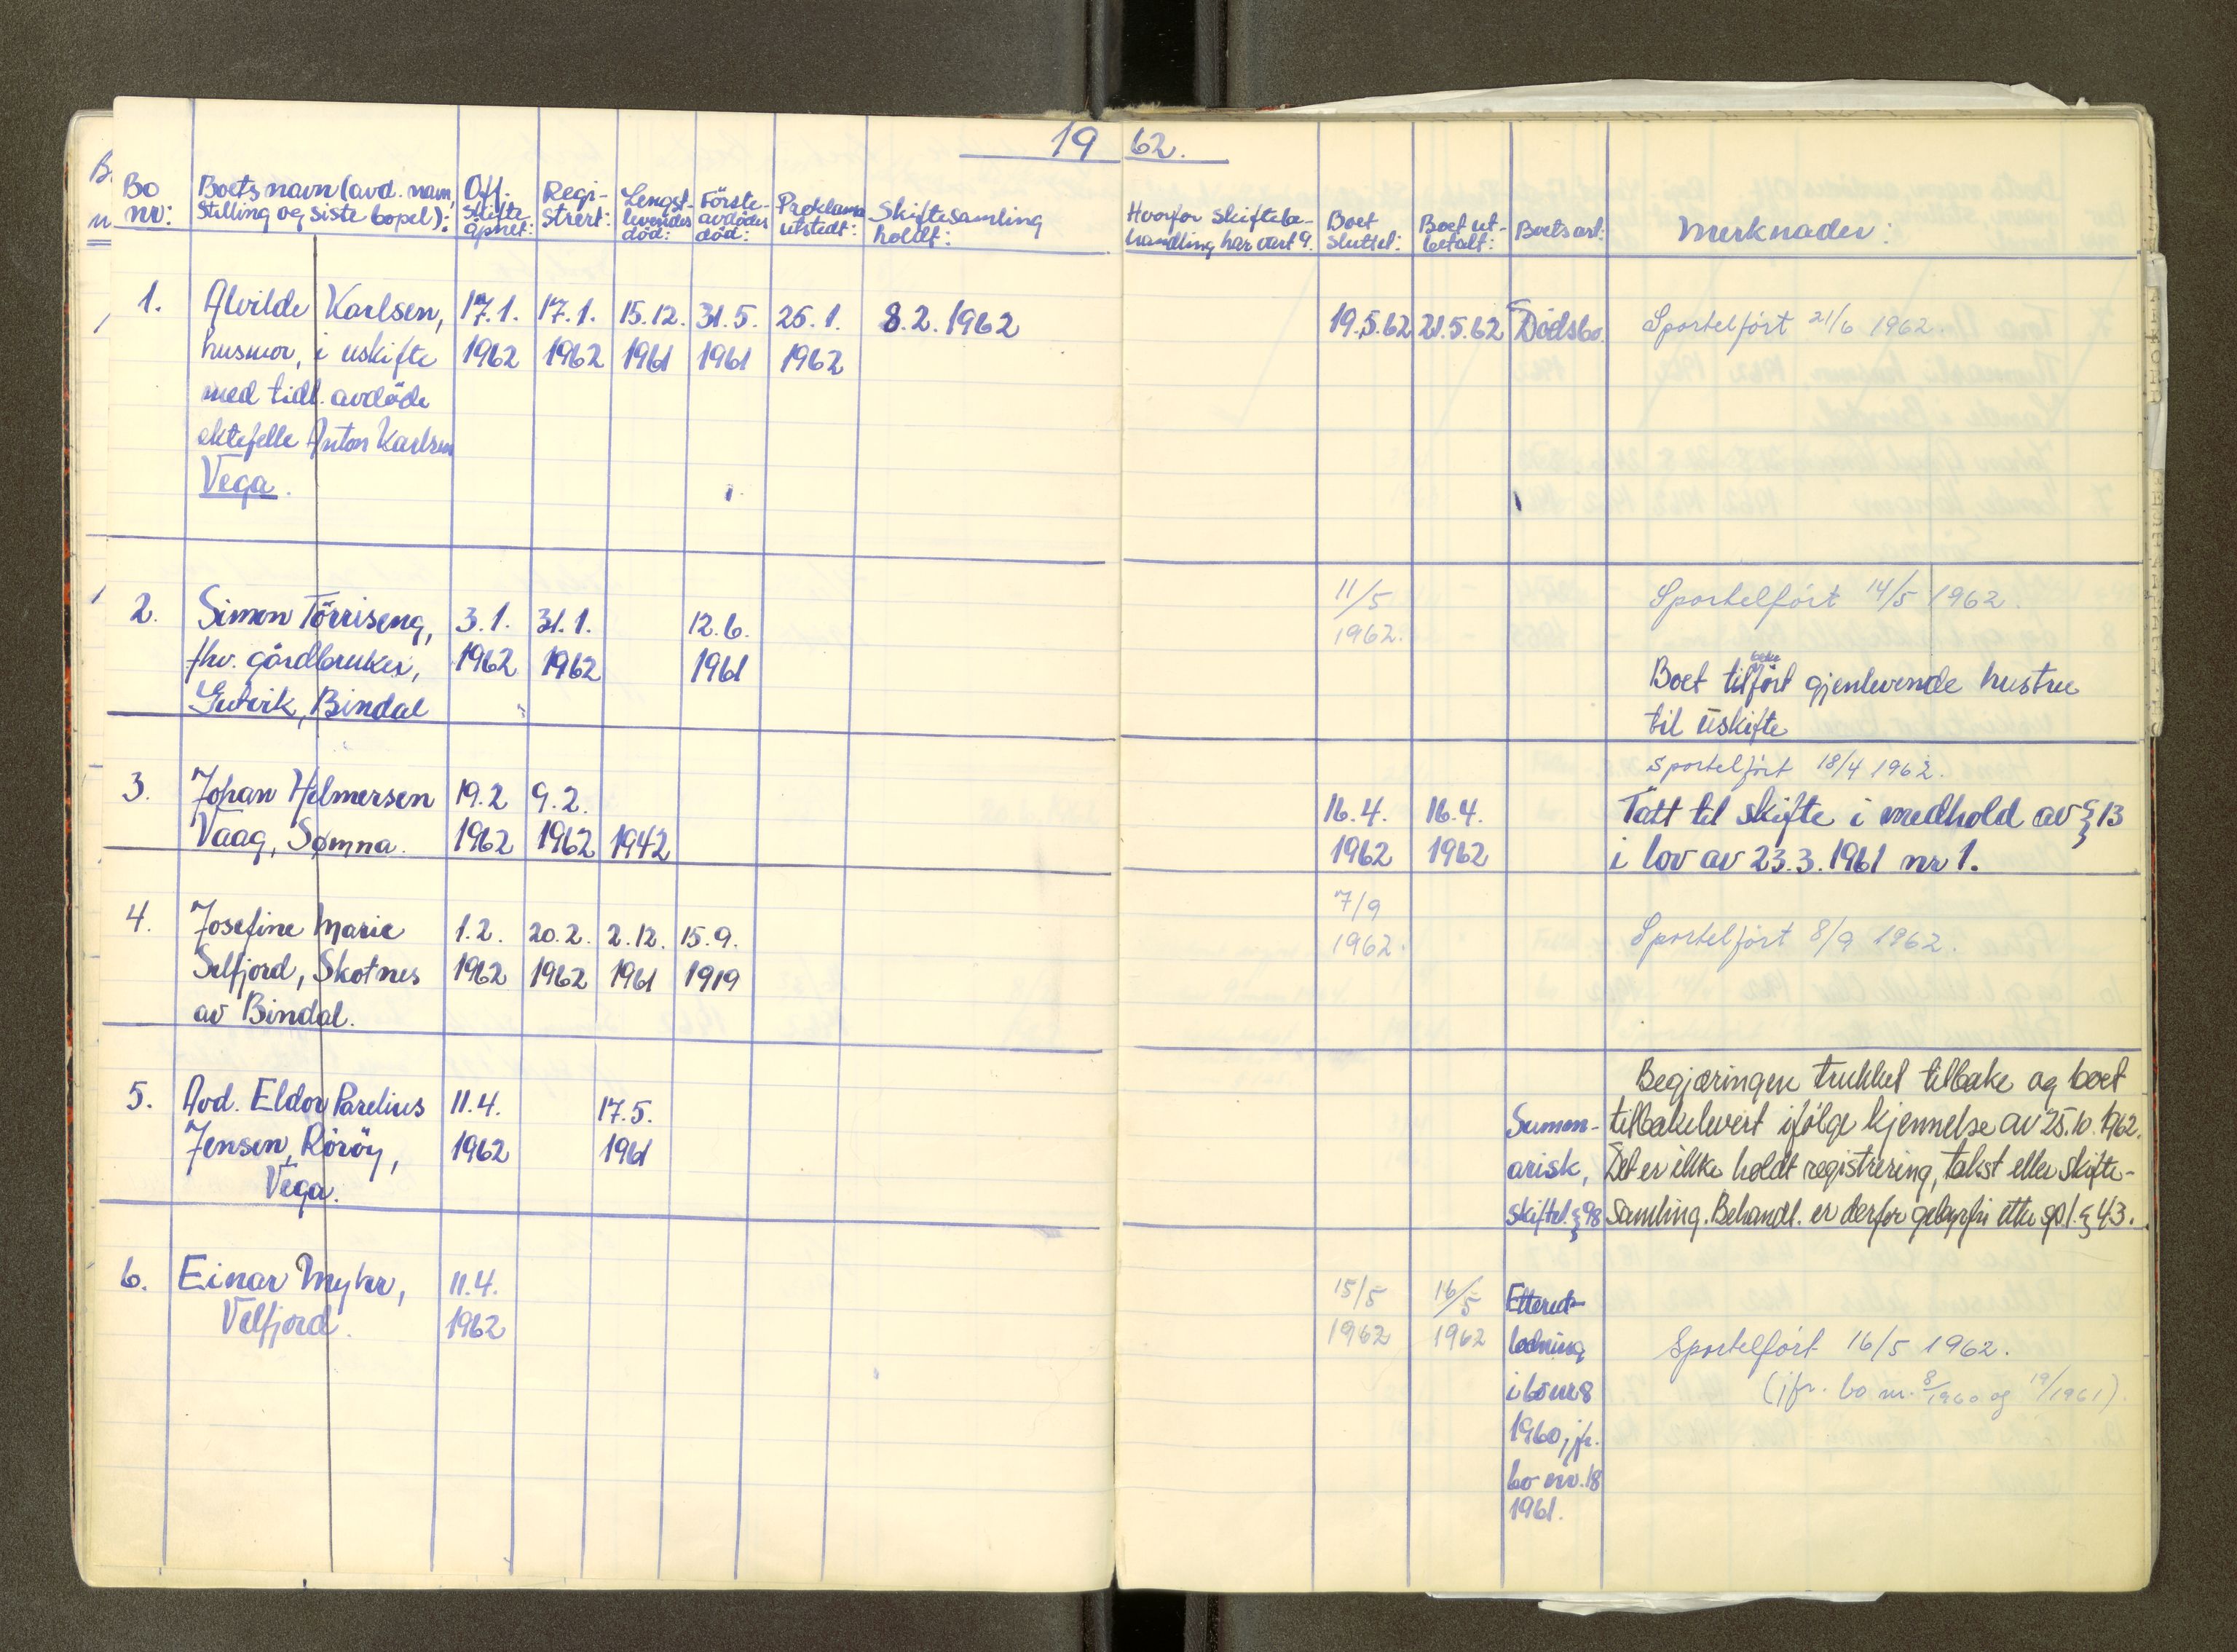 1962.
Bo nr:
Boets navn (avd. navn, stilling og siste bopel):
Off. skifte åpnet:
Regi-strert:
Lengst-levendes död:
Förste-avdödes död:
Proklama utstedt:
Skiftesamling holdt:
Hvorfor skiftebe-handling har vart 9.
Boet sluttet:
Boet ut-betalt:
Boets art:
Merknader:
1. Alvilde Karlsen, 17.1. 17.1. 15.12. 31.5. 25.1. 8.2.1962 19.5.62 21.5.62 Dödsbo. Sportelfört 21/6 1962.
husmor, i uskifte 1962 1962 1961 1961 1962
med tidl. avdöde
ektefelle Anton Karlsen
Vega.
11/5 Sportelfört 14/5 1962.
2. Simon Törriseng, 3.1. 31.1. 12.6. 1962.
fhv. gårdbruker, 1962 1962 1961 Boet tilfört gjenlevende hustru
Gutvik, Bindal til uskifte
Sportelfört 18/4 1962.
3. Johan Helmersen 19.2 9.2. 16.4. 16.4. Tatt til skifte i medhold av § 13
Vaag, Sømna. 1962 1962 1942 1962 1962 i lov av 23.3.1961 nr 1.
7/9
4. Josefine Marie 1.2. 20.2. 2.12. 15.9. 1962. Sportelfört 8/9 1962.
Selfjord, Skotnes 1962 1962 1961 1919
av Bindal.
Begjæringen trukket tilbake og boet
5. Avd. Eldor Parelius 11.4. 17.5. Summ- tilbakelevert ifölge kjennelse av 25.10.1962.
Jensen, Rörøy, 1962 1961 arisk, Det er ikke holdt registrering, takst eller skifte-
Vega. skiftel. § 98 samling. Behandl. er derfor gebyrfri etter spl. § 43.
6. Einar Myhr, 11.4. 15/5 16/5 Etterut-
Velfjord. 1962 1962 1962 lodning Sportelfört 16/5 1962.
i bo nr 8 (jfr. bo nr. 8/1960 og 19/1961).
1960, jfr.
bo nr. 18
1961.